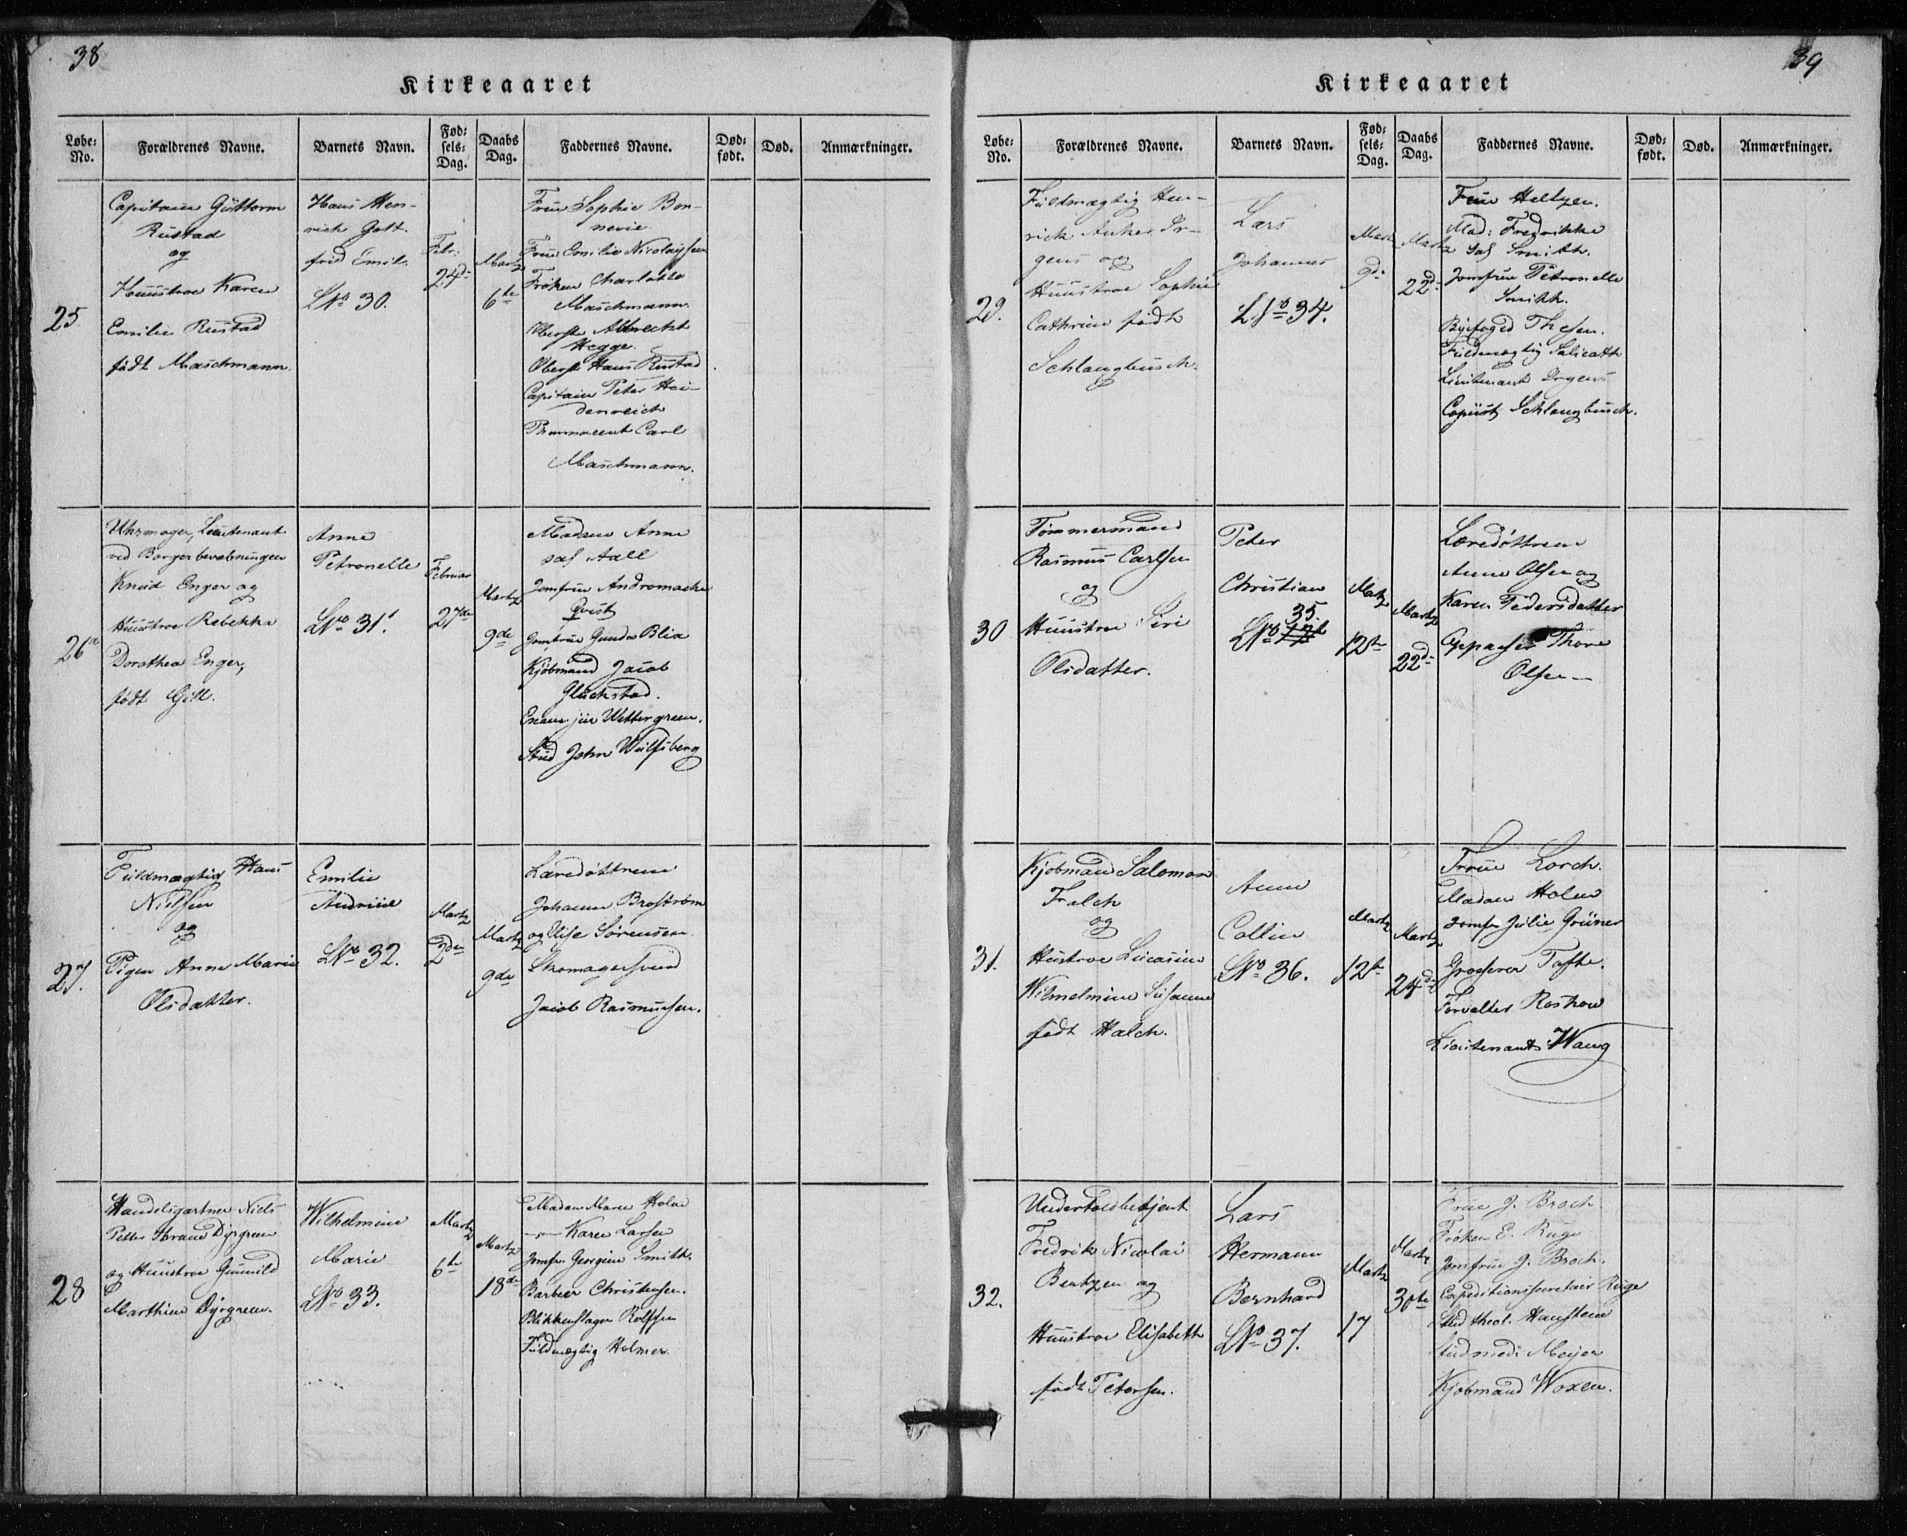 38
Kirkeaaret
Løbe-No.
Forældrenes Navne.
Barnets Navn.
Fødsels-Dag.
Daabs Dag.
Faddernes Navne.
Dødfødt.
Død.
Anmærkninger.
25
Capitain Guttorm
Rustad
og
Huustroe Karen
Emilie Rustad
født Maschmann.
Hans Hen-
rich Gott-
fried Emil.
LNo 30.
Febr.
24d
Martz
6te
Frue Sophie Bon-
nevie.
Frue Emilie Nicolaysen
Frøken Charlotte
Maschmann.
Oberst Albrecht
Hegge.
Oberst Hans Rustad
Capitain Peter Hei-
denreich
Pharmaceut Carl
Maschmann.
26
Uhrmager, Lieutenant
ved Borgerbevæbningen
Knud Enger og
Huustroe Rebekka
Dorothea Enger,
født Gill.
Anne
Petronelle
LNo 31.
Februar
27de
Martz
9de
Madam Anne
sal Aall
Jomfrue Andromache
Qvist
Jomfrue Gunda Blix
Kjøbmand Jacob
Gluckstad.
Exam jur Wettergreen.
Stud John Wulfsberg
27.
Fuldmægtig Hans
Nielsen
og
Pigen Anne Marie
Olsdatter.
Emilie
Andrine
LNo 32.
Martz
2den
Martz
9de
Læredøttrene
Johanne Brostrøm
og Elise Sørensen
Skomagersvend
Jacob Rasmussen.
28
Handelsgartner Niels
Petter Strand Dyrgreen
og Huustroe Gunnild
Marthine Dyrgreen.
Wilhelmine
Marie
LNo 33.
Martz
6te
Martz
18de
Madam Maren Holm
— Karen Larsen
Jomfr Georgine Smith.
Barber Christensen.
Blikkenslager Rolfsen
Fuldmægtig Holmer.
39
Kirkeaaret
Løbe-No.
Forældrenes Navne.
Barnets Navn.
Fødsels-Dag.
Daabs Dag.
Faddernes Navne.
Dødfødt.
Død.
Anmærkninger.
29.
Fuldmægtig Hen-
rick Anker Ir-
gens og
Huustroe Sophie
Cathrine født
Schlangbusch.
Lars
Johannes
LNo 34.
Martz
9d
Martz
22d
Frue Heltzen.
Mad: Fredrikke
sal Smith.
Jomfrue Petronelle
Smith.
Byefoged Thesen.
Fuldmægtig Salicath
Lieutenant Irgens
Copiist Schlangbusch.
30
Tømmermand
Rasmus Carlsen
og
Huustroe Siri
Olsdatter.
Peter
Christian
35.
LNo
Martz
12te
Martz
22d
Læredøttrene
Anne Olsen og
Karen Pedersdatter
Oppasser Thore
Olsen —
31.
Kjøbmand Salomon
Falch
og
Huustroe Lucasine
Wilhelmine Susanne
født Halch.
Anne
Collin
LNo 36.
Martz
12te
Martz
24de
Frue Lorch.
Madam Holm
Jomfr Julie Grüner
Grosserer Tofte.
Forvalter Roshow
Lieutenant Wang
32.
Undertoldbetjent
Fredrik Nicolai
Bentzen og
Huustroe Elisabeth
født Petersen.
Lars
Hermann
Bernhard
LNo 37.
Martz
17
Martz
30te
Frue J. Broch
Frøken E. Ruge
Jomfrue J. Broch.
Expeditionssecretair Ruge
Stud theol. Hansteen
Stud med: Meyer
Kjøbmand Woxen.